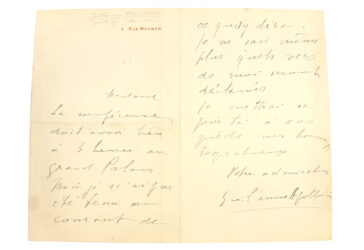 RUE MESNIER
Madame
La conférence
doit avoir lieu
à 3 heures au
grand Palais
Mais je n'ai pas
été tenu au
courant de
ce qu'on dira.
Je ne sais même
plus quels vers
de moi seront
déclamés
Je mettrai
à vos
pieds mes hommages
respectueux
Votre admirateur
Guillaume Apollinaire